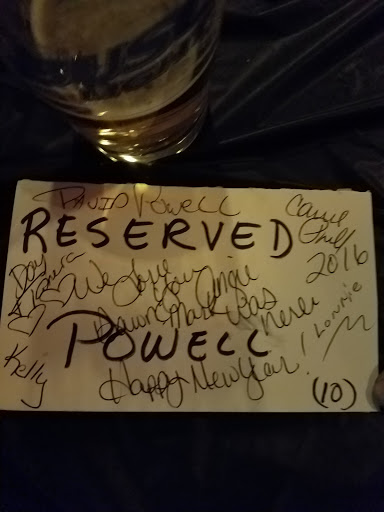 DAVID POWELL
RESERVED
Carrie
Phil
2016
Day
We Love You Angie
Dawn Mark was here
Lonnie
POWELL
Kelly
Happy New Year!
(10)